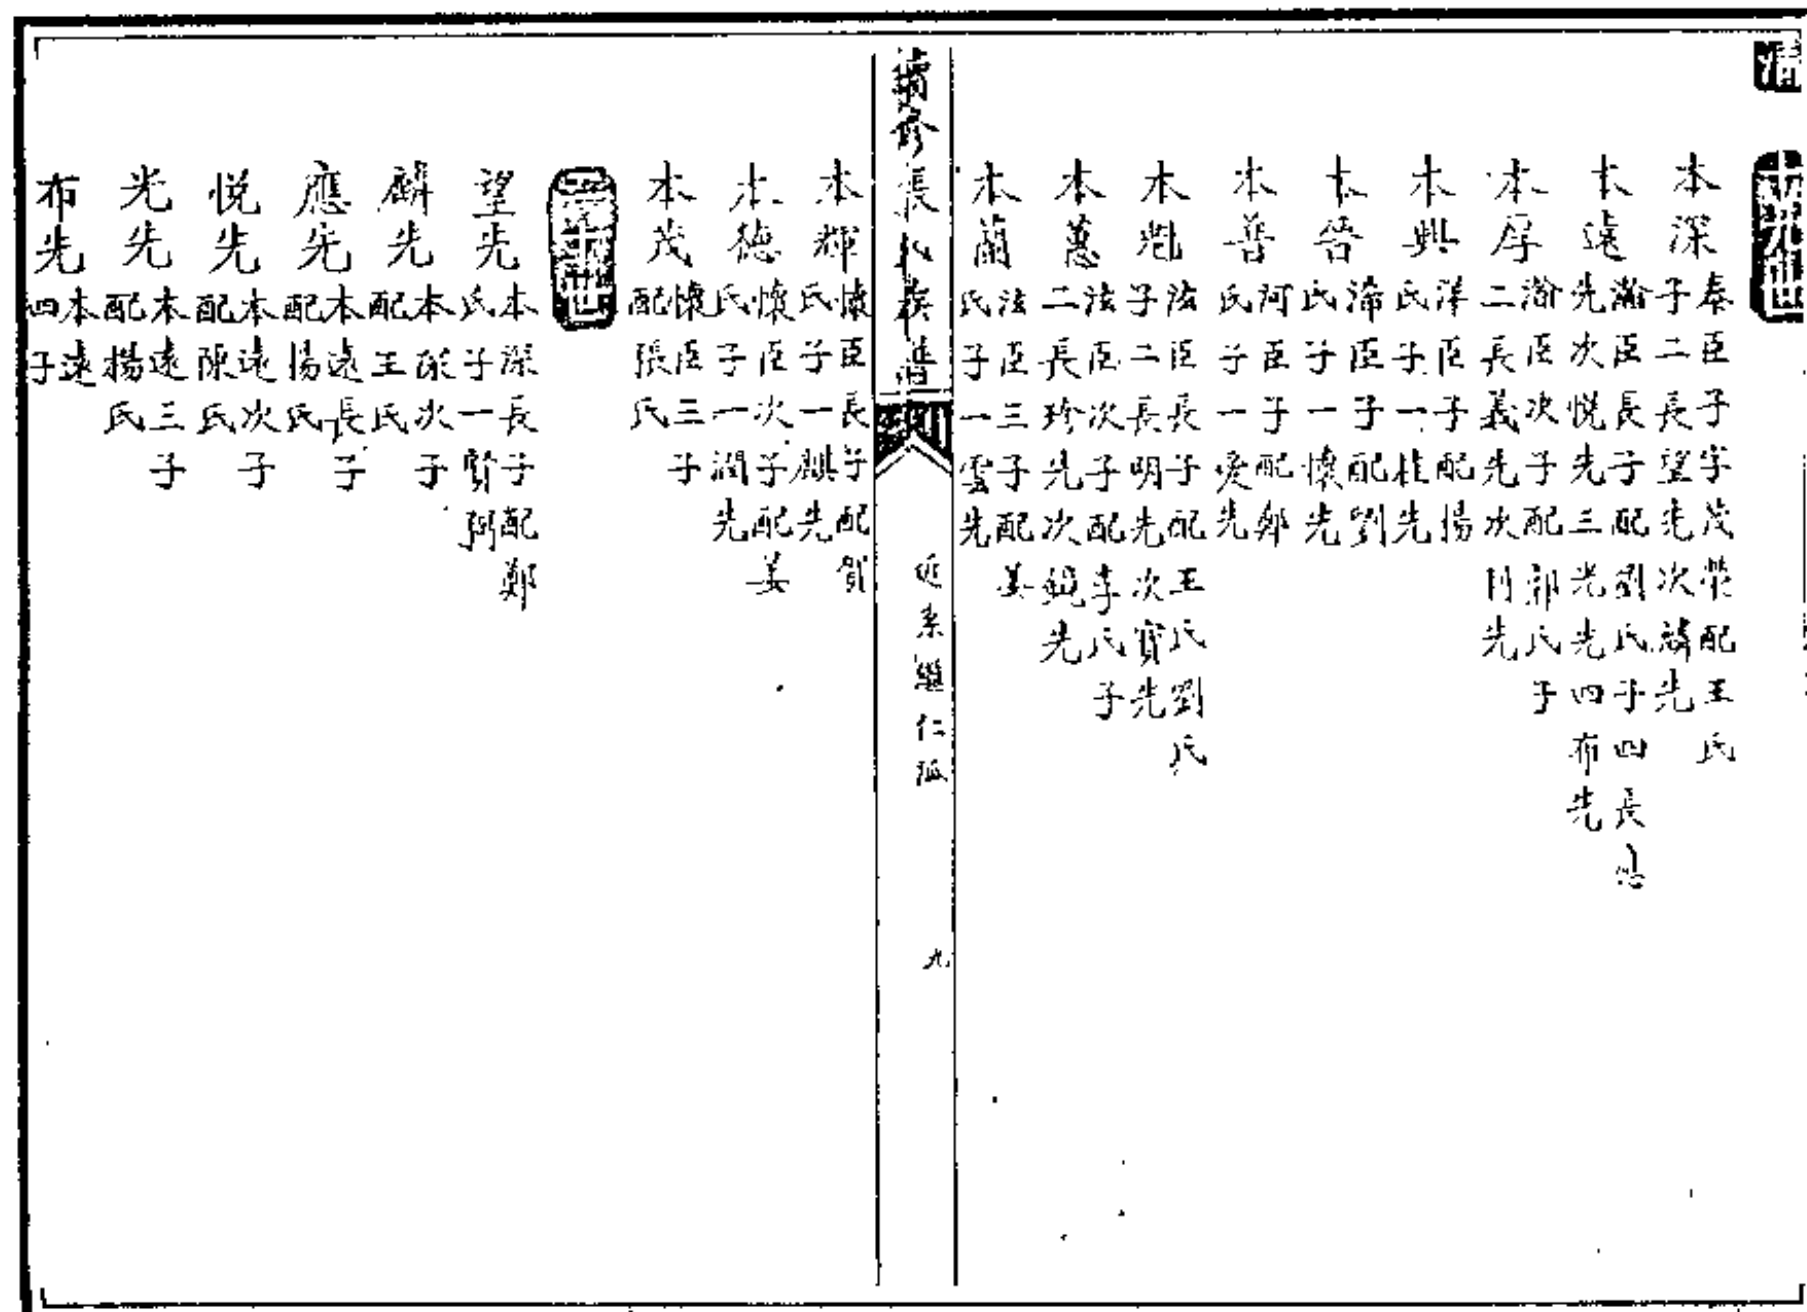 清
十九世
本深 奉臣子字茂榮配王氏
子二長望先次麟先
本遠 瀚臣長子配劉氏子四長應
先次悅先三光先四布先
本厚 瀚臣次子配郭氏子
二長義先次先
本興 洋臣子配楊
氏子一桂先
本晉 沛臣子配劉
氏子一懷先
本普 河臣子配鄭
氏子一愛先
本魁 法臣長子配王氏劉氏
子二長明先次寶先
本蕙 法臣次子配李氏子
二長珍先次鏡先
本蘭 法臣三子配姜
氏子一雲先
續修長氏族譜
近系繼仁派
九
本輝 懷臣長子配賀
氏子一麒先
本德 懷臣次子配姜
氏子一潤先
本茂 懷臣三子
配張氏
二十世
望先 本深長子配鄭
氏子一賢弼
麟先 本深次子
配王氏
應先 本遠長子
配楊氏
悅先 本遠次子
配陳氏
光先 本遠三子
配楊氏
布先 本遠
四子